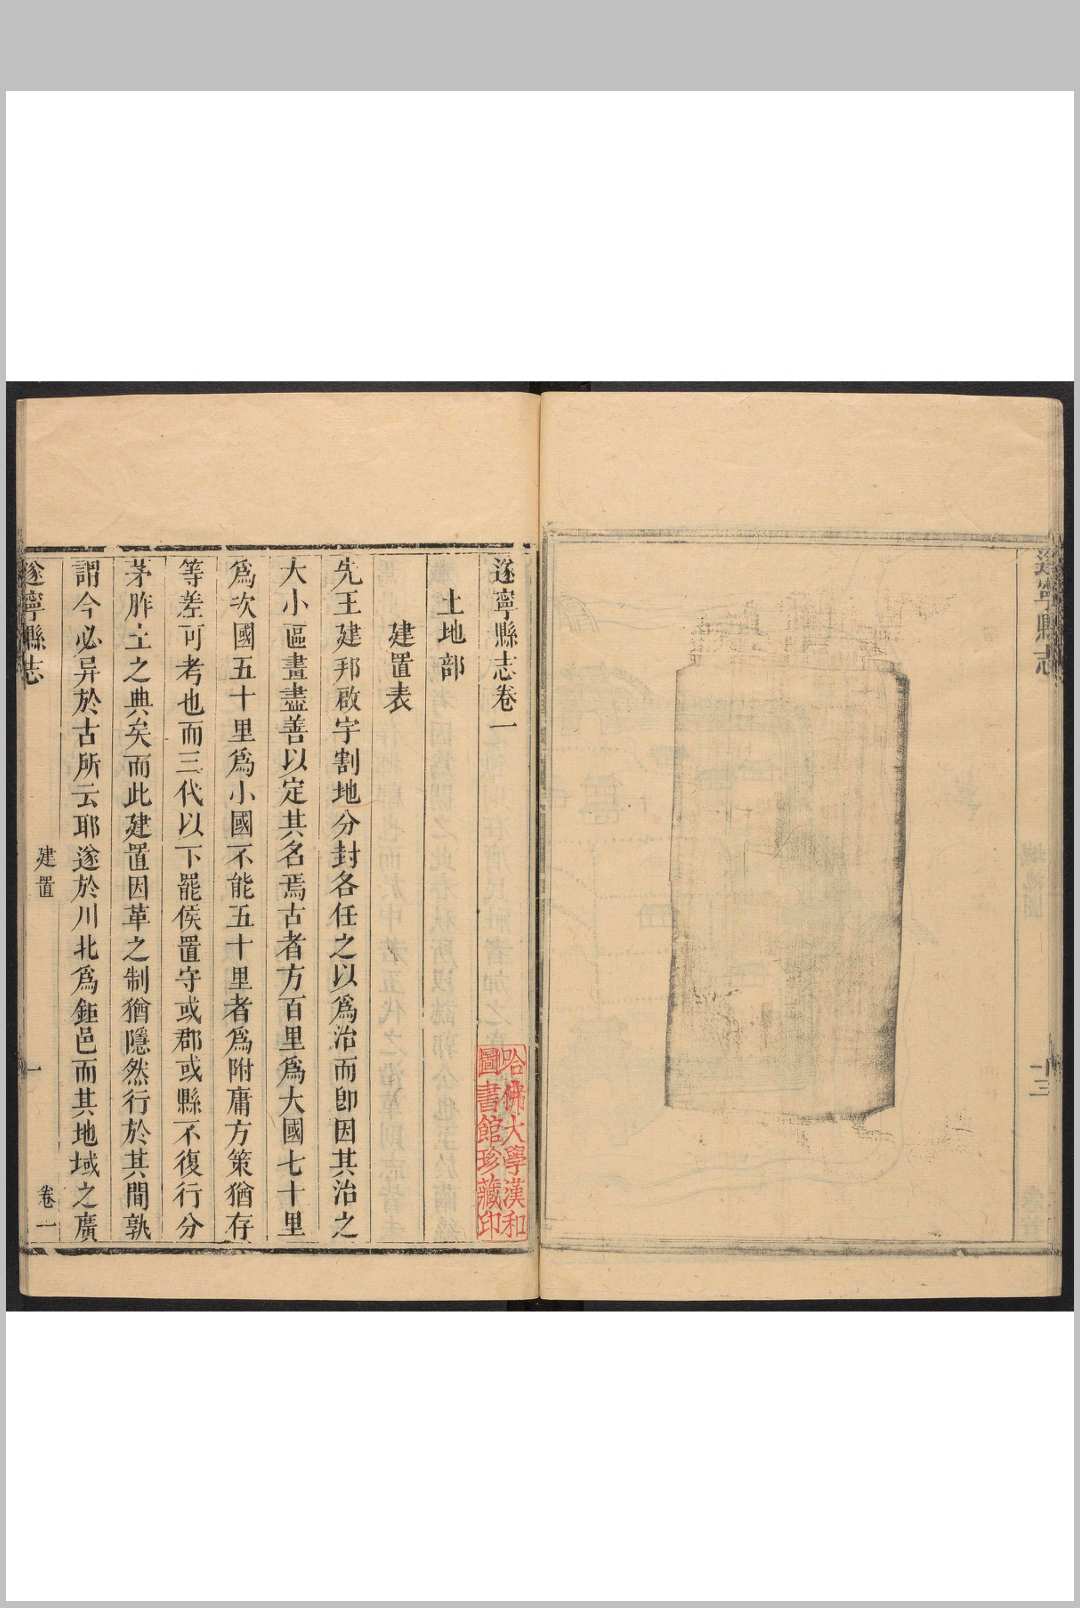 遂寧縣志
十三
遂寧縣志卷一
土地部
建置表
先王建邦啟宇割地分封各任之以爲治而卽因其治之
大小區畫盡善以定其名焉古者方百里爲大國七十里
爲次國五十里爲小國不能五十里者爲附庸方策猶存
等差可考也而三代以下罷侯置守或郡或縣不復行分
茅胙土之典矣而此建置因革之制猶隱然行於其間孰
謂今必异於古所云耶遂於川北爲鉅邑而其地域之廣
遂寧縣志
建置
一
卷一
哈佛大學漢和
圖書館珍藏印